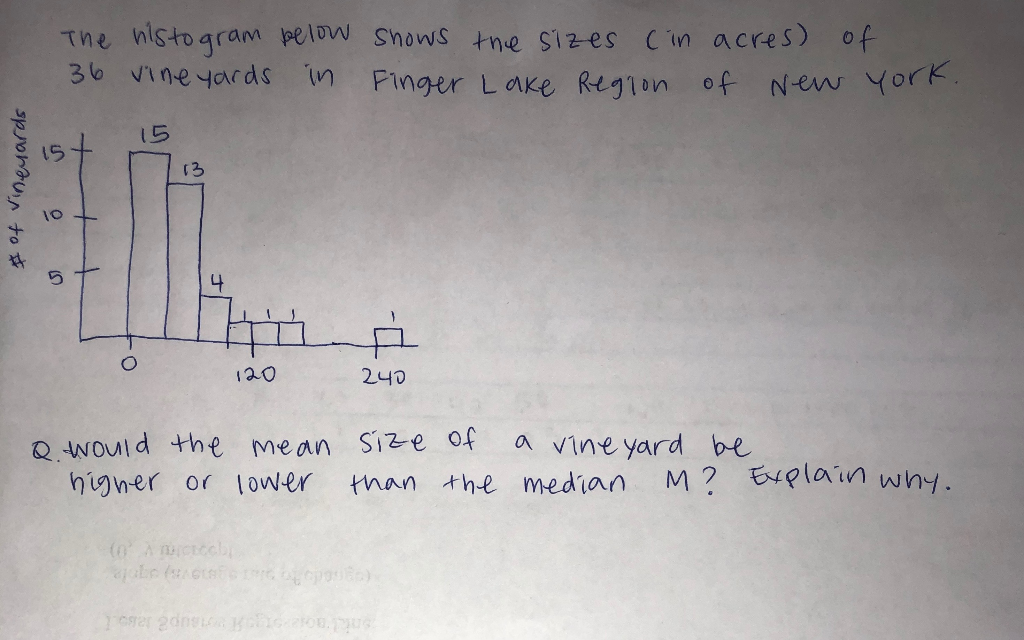 The histogram below shows the sizes (in acres) of
36 vineyards in Finger Lake Region of New York.
# of vineyards
15
15
13
10
5
4
1 1 1
1
0
120
240
Q. Would the mean size of a vineyard be
higher or lower than the median M? Explain why.